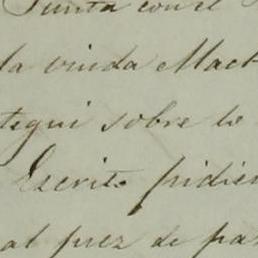 Junta con el
la viuda Mack
tegui sobre lo
Escrito pidien
al juez de paz